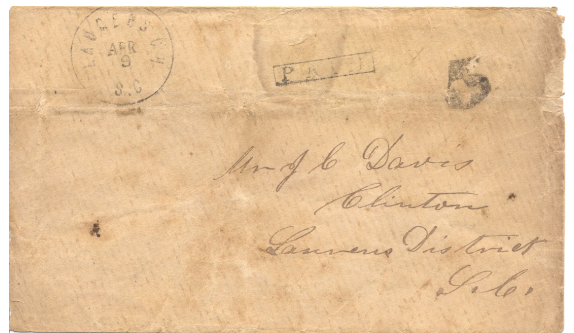 APR
9
S.C
PAID
5
Mr J C Davis
Clinton
Laurens District
S.C.